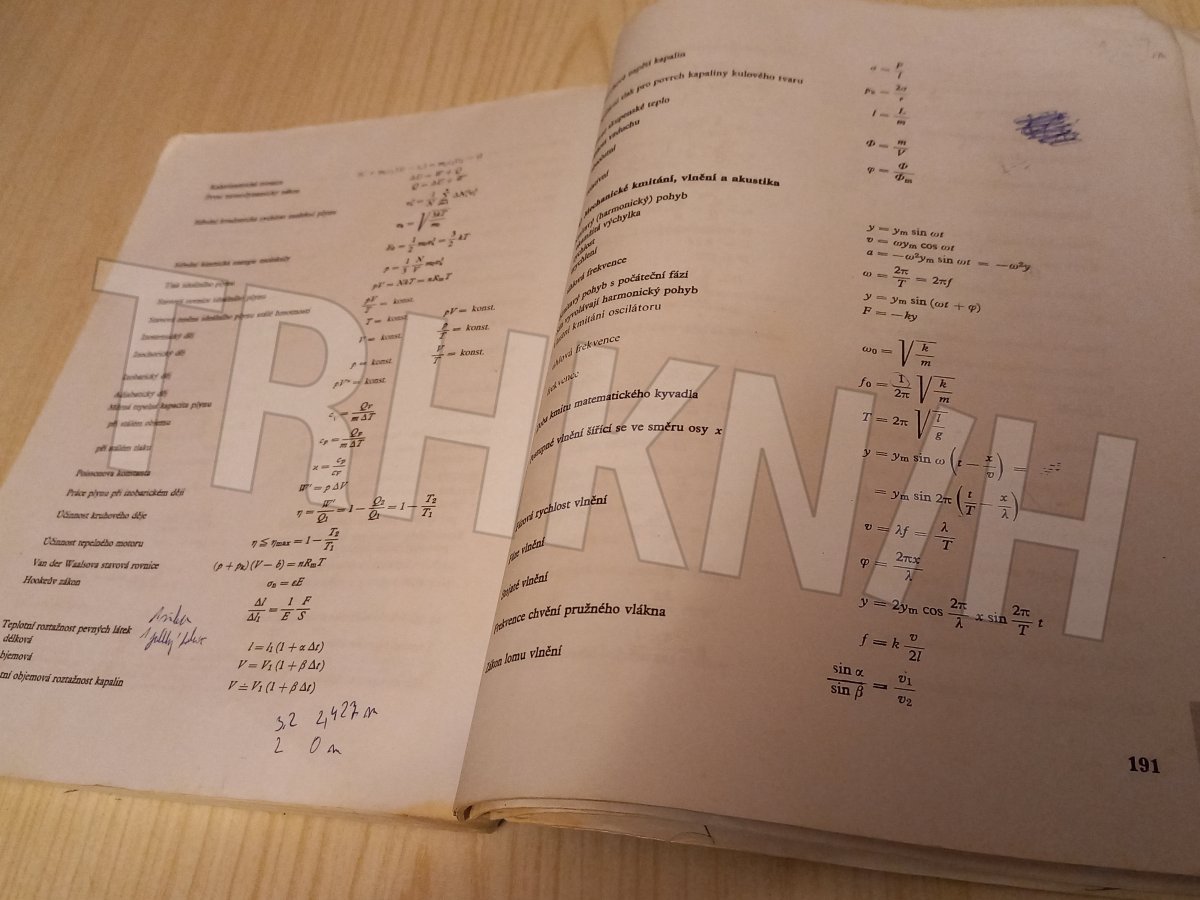 Kalorimetrická rovnice
První termodynamický zákon
ΔU = W + Q
Q = ΔU + W′
Střední kvadratická rychlost molekul plynu
Střední kinetická energie molekuly
Tlak ideálního plynu
pV = NkT = nRₘT
Stavová rovnice ideálního plynu
Stavová rovnice ideálního plynu stálé hmotnosti
pV/T = konst.
Izotermický děj T = konst. pV = konst.
Izochorický děj V = konst. p/T = konst.
Izobarický děj p = konst. V/T = konst.
Adiabatický děj pVϰ = konst.
Měrná tepelná kapacita plynu
při stálém objemu
při stálém tlaku cₚ = Qₚ/(m ΔT)
Poissonova konstanta ϰ = cₚ/cV
Práce plynu při izobarickém ději W′ = p ΔV
Účinnost kruhového děje η = W′/Q₁ = 1 − Q₂/Q₁ = 1 − T₂/T₁
Účinnost tepelného motoru η ≦ ηmax = 1 − T₂/T₁
Van der Waalsova stavová rovnice
Hookeův zákon σₙ = εE
Δl/Δl₁ = 1/E F/S
Teplotní roztažnost pevných látek
délková l = l₁ (1 + α Δt)
bjemová V = V₁ (1 + β Δt)
tní objemová roztažnost kapalin V ≐ V₁ (1 + β Δt)
3,2 2,427 m
2 0 m
napětí kapalin σ = F/l
tlak pro povrch kapaliny kulového tvaru pₖ = 2σ/r
skupenské teplo l = L/m
vzduchu Φ = m/V
φ = Φ/Φₘ
Mechanické kmitání, vlnění a akustika
(harmonický) pohyb
výchylka y = yₘ sin ωt
v = ωyₘ cos ωt
a = −ω²yₘ sin ωt = −ω²y
frekvence ω = 2π/T = 2πf
pohyb s počáteční fází y = yₘ sin (ωt + φ)
vyvolávají harmonický pohyb F = −ky
kmitání oscilátoru
frekvence ω₀ = √(k/m)
f₀ = 1/2π √(k/m)
kmitu matematického kyvadla T = 2π √(l/g)
vlnění šířící se ve směru osy x y = yₘ sin ω (t − x/v) =
= yₘ sin 2π (t/T − x/λ)
Fázová rychlost vlnění v = λf = λ/T
Fáze vlnění φ = 2πx/λ
Stojaté vlnění y = 2yₘ cos 2π/λ x sin 2π/T t
Frekvence chvění pružného vlákna f = k v/2l
Zákon lomu vlnění sin α/sin β = v₁/v₂
191
TRHKNIH